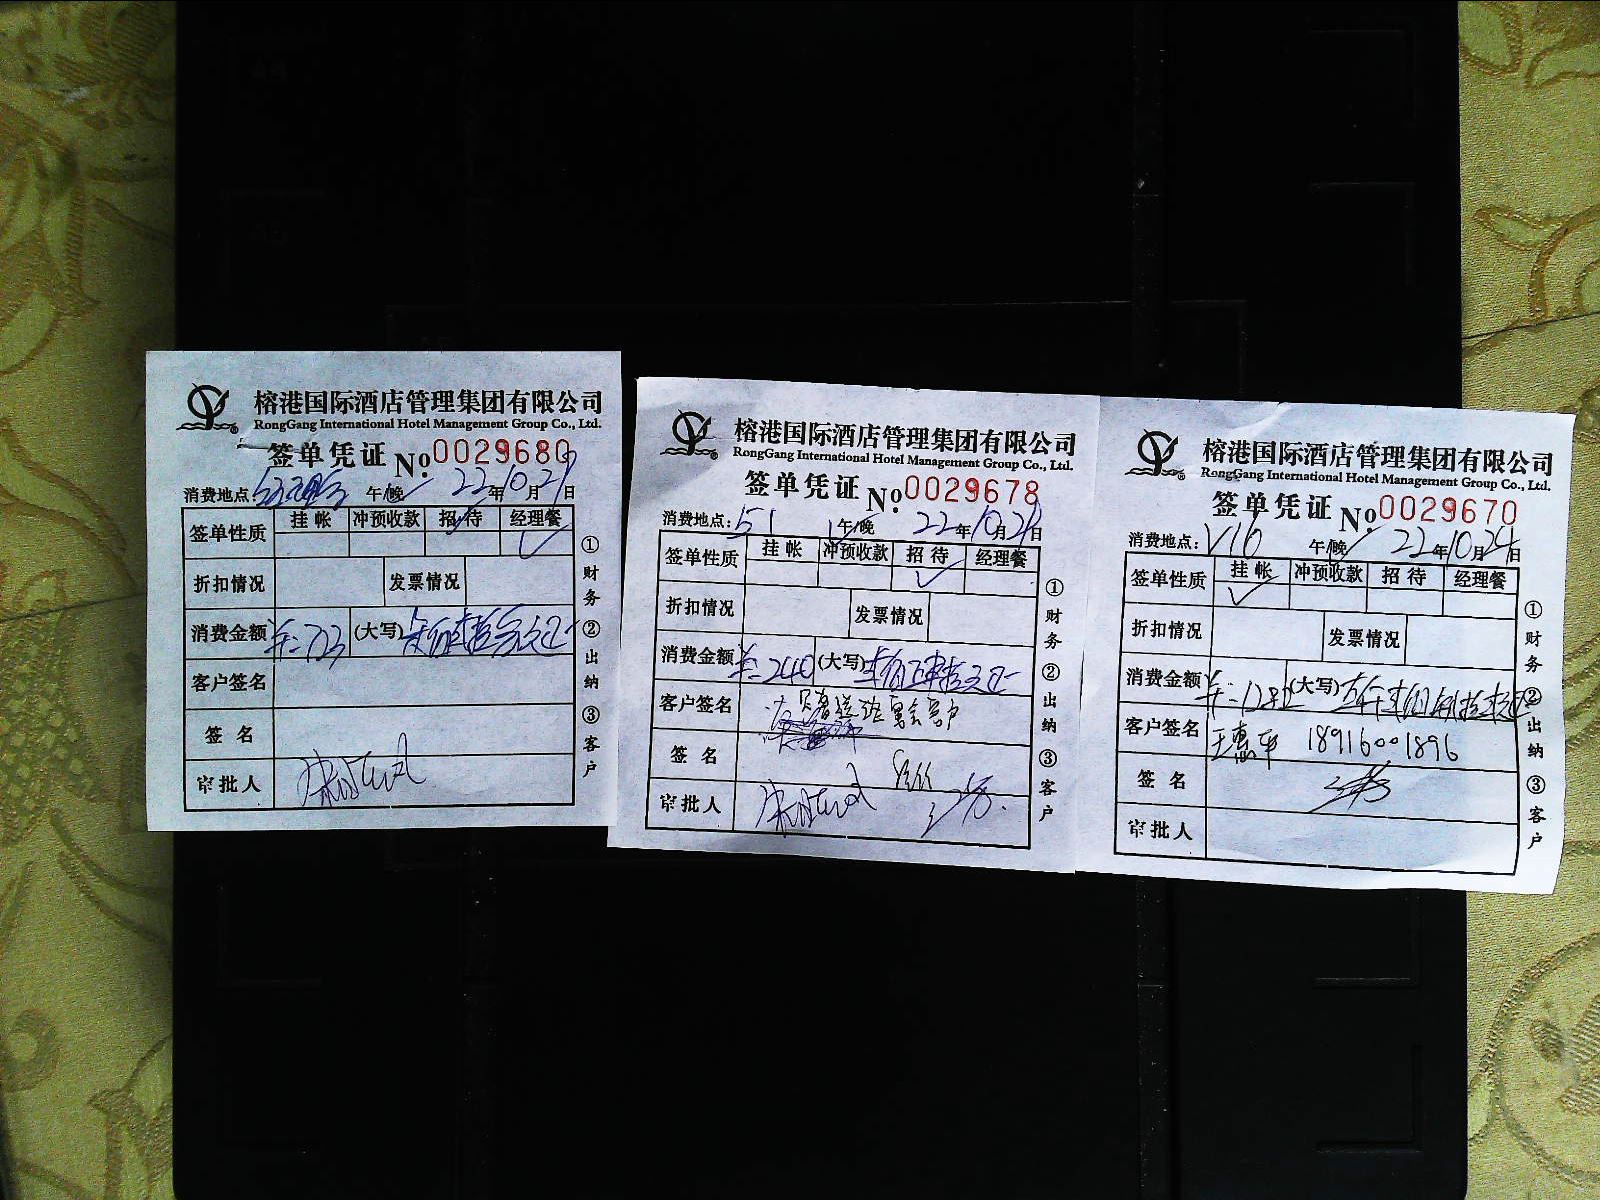 榕港国际酒店管理集团有限公司
RongGang International Hotel Management Group Co., Ltd.
签单凭证 No. 0029680
消费地点: 午/晚 22年10月 日
签单性质 挂帐 冲预收款 招待 经理餐
折扣情况 发票情况
消费金额 (大写)
客户签名
签名
审批人
①财务 ②出纳 ③客户
榕港国际酒店管理集团有限公司
RongGang International Hotel Management Group Co., Ltd.
签单凭证 No. 0029678
消费地点: 51 午/晚 22年10月 日
签单性质 挂帐 冲预收款 招待 经理餐
折扣情况 发票情况
消费金额 240 (大写)
客户签名
签名
审批人
①财务 ②出纳 ③客户
榕港国际酒店管理集团有限公司
RongGang International Hotel Management Group Co., Ltd.
签单凭证 No. 0029670
消费地点: V16 午/晚 22年10月24日
签单性质 挂帐 冲预收款 招待 经理餐
折扣情况 发票情况
消费金额 (大写)
客户签名 王惠 18916001896
签名
审批人
①财务 ②出纳 ③客户